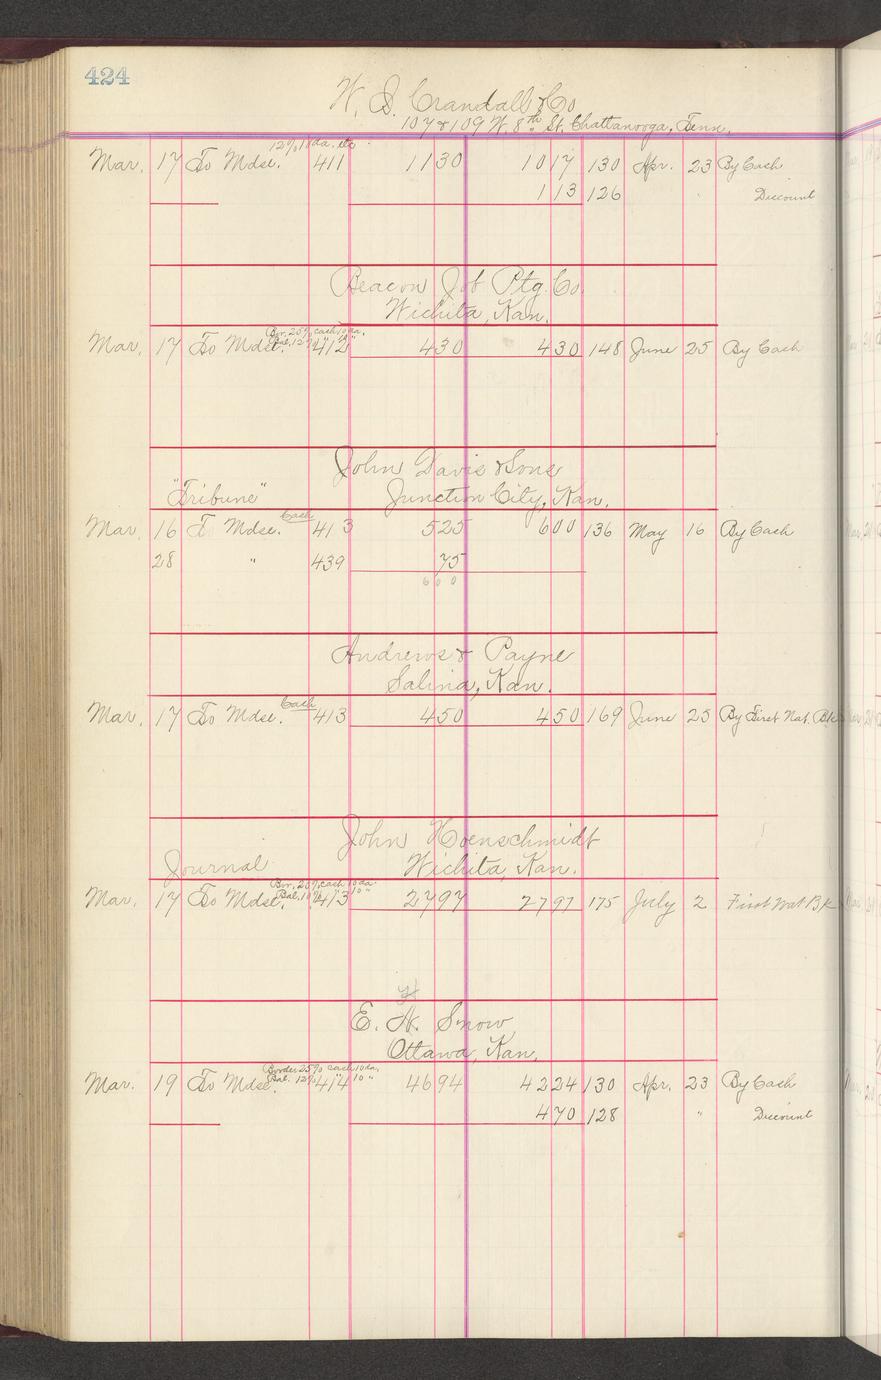 424
W. S. Crandall & Co
107 & 109 W. 8th St. Chattanooga, Tenn.
12% 10 da. etc
Mar. 17 To Mdse. 411 1130 1017 130 Apr. 23 By Cash
113 126 Discount
Beacon Job Ptg. Co.
Wichita, Kan.
Bor. 25% cash 10 da.
Bal. 12% " 10 "
Mar. 17 To Mdse. 412 430 430 148 June 25 By Cash
John Davis & Sons
"Tribune" Junction City, Kan.
Cash
Mar. 16 To Mdse. 413 525 600 136 May 16 By Cash
28 " 439 75
600
Andrews & Payne
Salina, Kan.
Cash
Mar. 17 To Mdse. 413 450 450 169 June 25 By First Nat. Bk
John Hoenschmidt
Journal Wichita, Kan.
Bor. 25% cash 10 da
Bal. 10% " 10 "
Mar. 17 To Mdse. 413 2797 2797 175 July 2 First Nat Bk
H
E. N. Snow
Ottawa, Kan.
Border 25% cash 10 da.
Bal. 12% " 10 "
Mar. 19 To Mdse. 414 4694 4224 130 Apr. 23 By Cash
470 128 " Discount